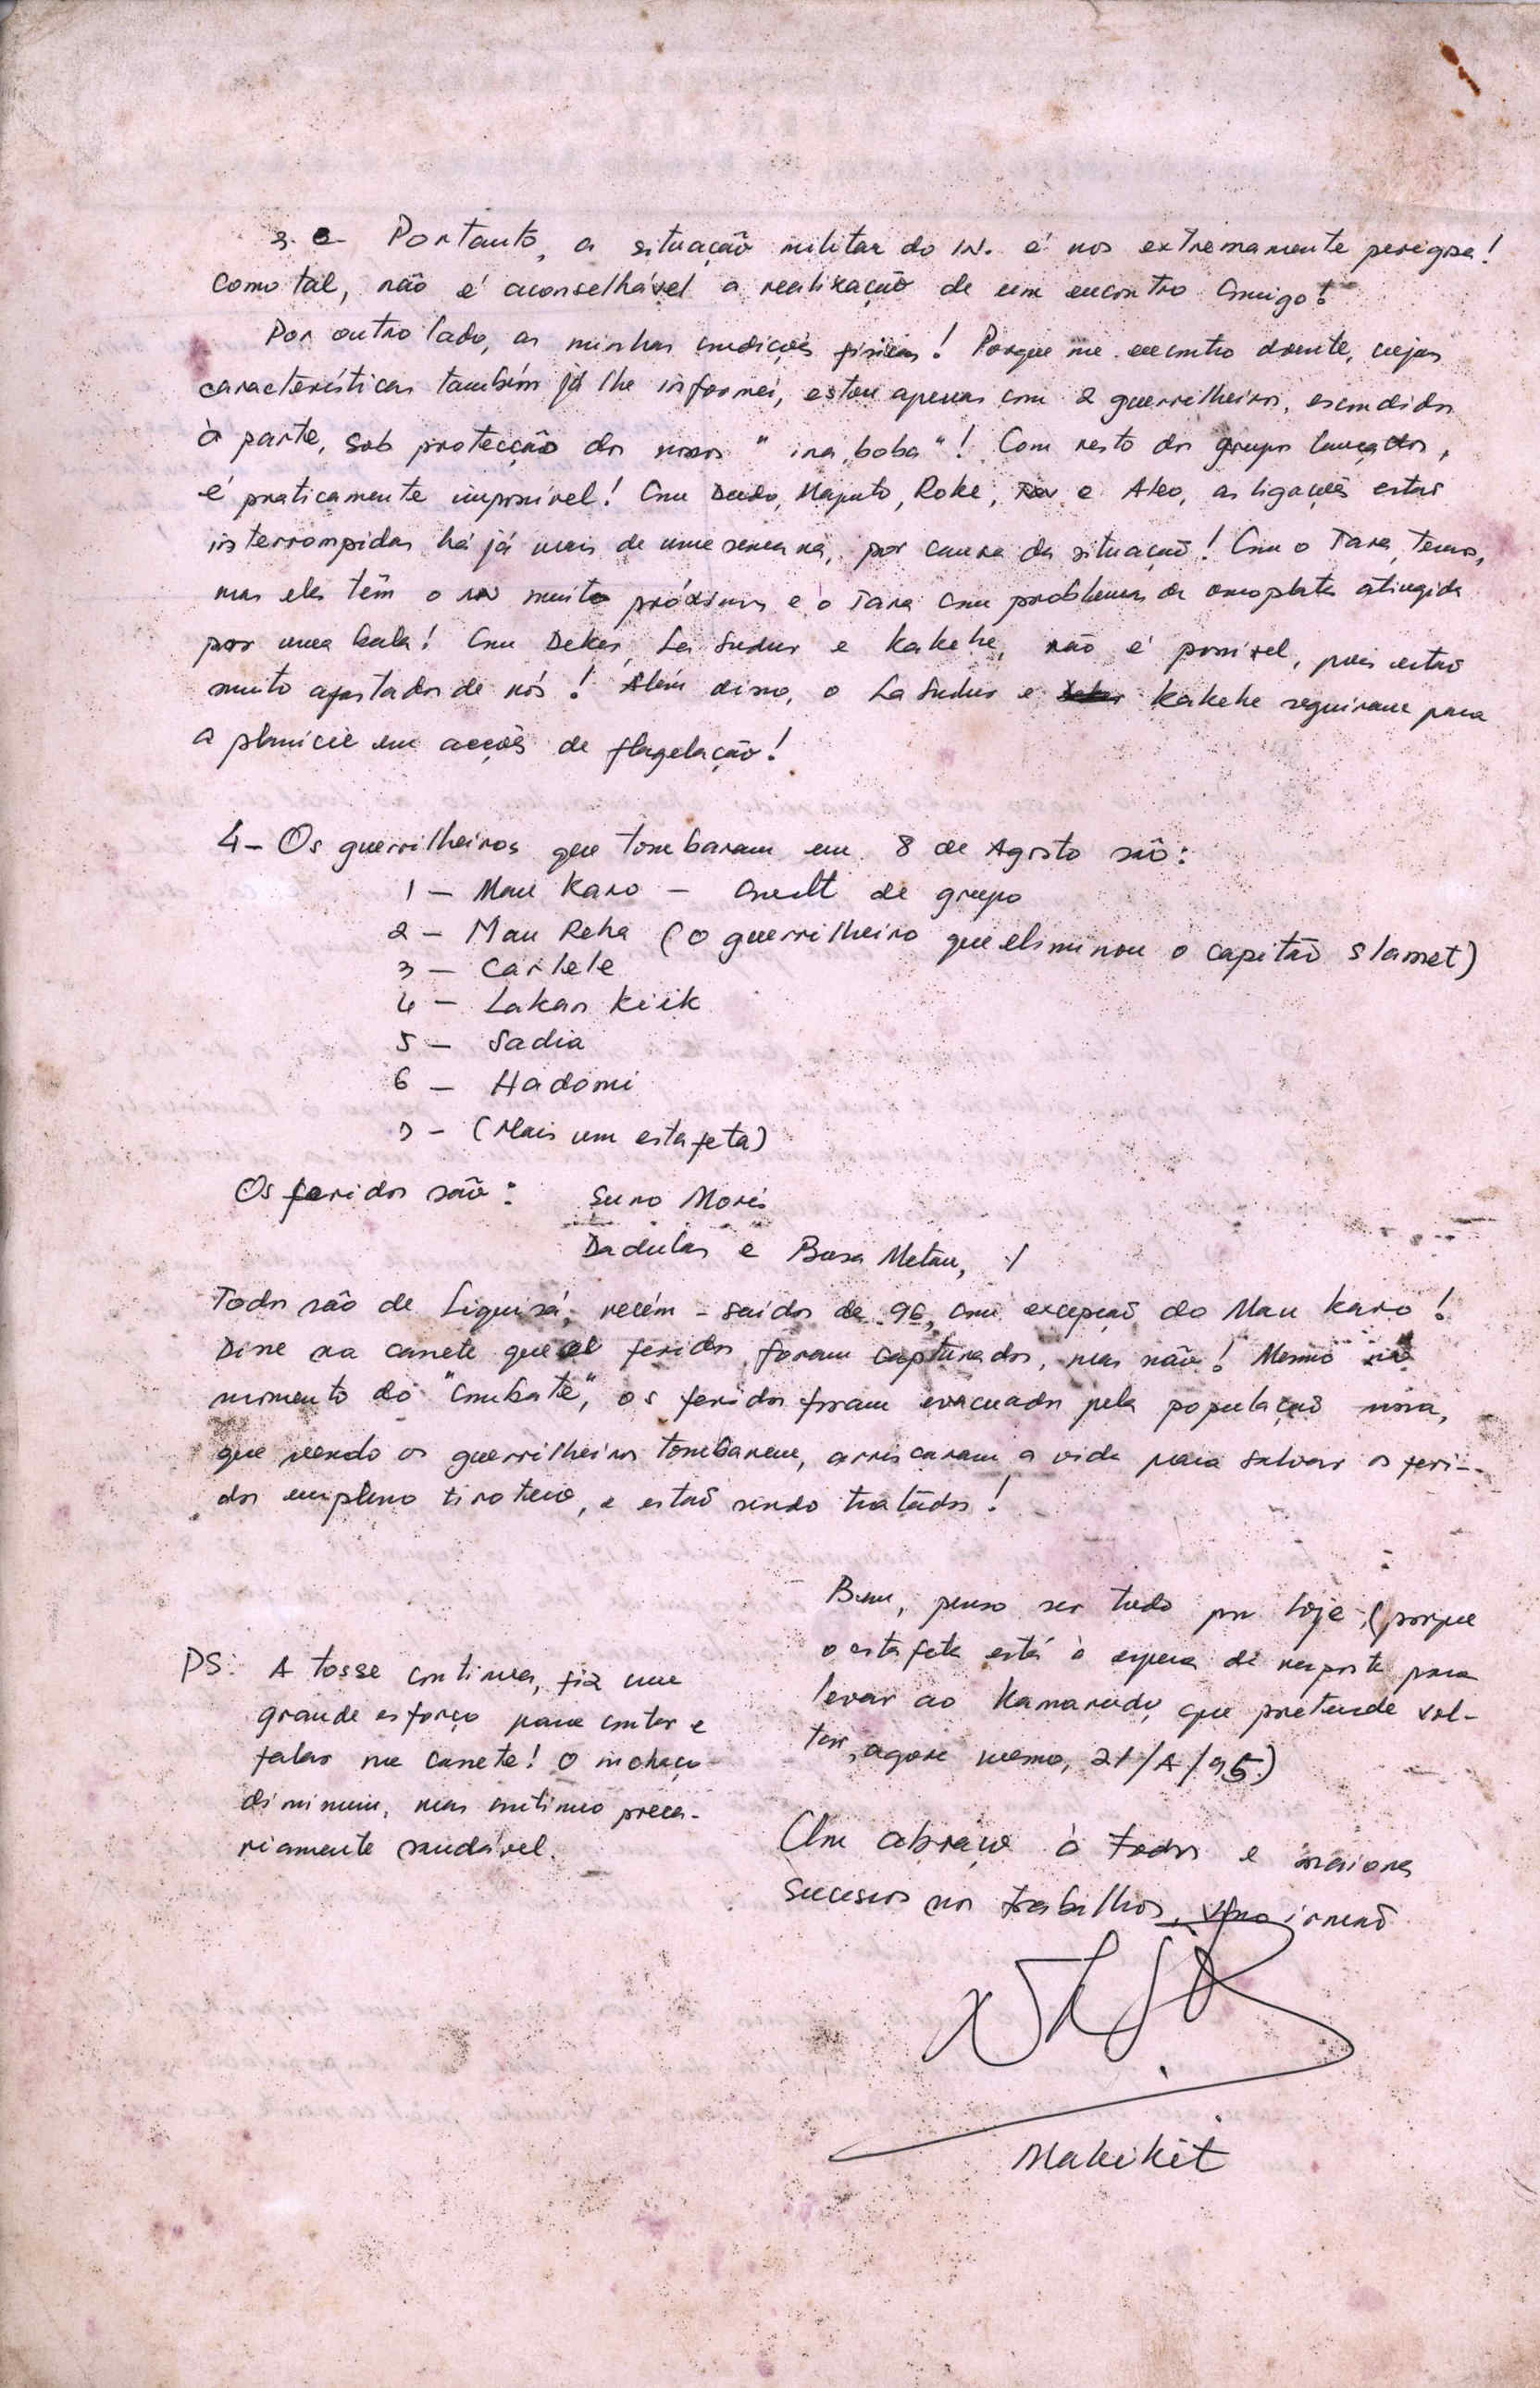 3. e- Portanto, a situação militar do IN. é nos extremamente perigosa!
Como tal, não é aconselhável a realização de um encontro comigo!
Por outro lado, as minhas condições físicas! Porque me encontro doente, cujas
características também já lhe informei, estou apenas com 2 guerrilheiros, escondidos
à parte, sob protecção dos nossos "ina, boba"! Com resto dos grupos lançados,
é praticamente impossível! Com Dudo, Maputo, Roke, e Aleo, as ligações estão
interrompidas há já mais de uma semana, por causa da situação! Com o Tara, temos,
mas eles têm o IN muito próximo e o Tara com problemas da omoplata atingida
por uma bala! Com Deker, La Sudur e Kakehe, não é possível, pois estão
muito afastados de nós! Além disso, o La Sudur e Kakehe seguiram para
a planície em acções de flagelação!
4- Os guerrilheiros que tombaram em 8 de Agosto são:
1 - Mau Karo - Cmdt de grupo
2 - Mau Reha (o guerrilheiro que eliminou o capitão Slamet)
3 - Carlele
4 - Lakan Kiik
5 - Sadia
6 - Hadomi
7 - (Mais um estafeta)
Os feridos são: Suro Moris
Dadulas e Busa Metan,
Todos são de Liquiçá, recém-saídos de 96, com excepção do Mau Karo!
Disse na cassete que feridos foram capturados, mas não! Mesmo no
momento do "combate", os feridos foram evacuados pela população nossa,
que vendo os guerrilheiros tombarem, arriscaram a vida para salvar os feri-
dos em pleno tiroteio, e estão sendo tratados!
Bom, penso ser tudo por hoje, (porque
o estafeta está à espera de resposta para
levar ao Kamarudy, que pretende vol-
tar, agora mesmo, 21/A/95)
PS: A tosse continua, fiz um
grande esforço para contar e
falar na cassete! O inchaço
diminuiu, mas continuo preca-
riamente saudável.
Um abraço à todos e maiores
sucessos nos trabalhos, vosso irmão
Makikit